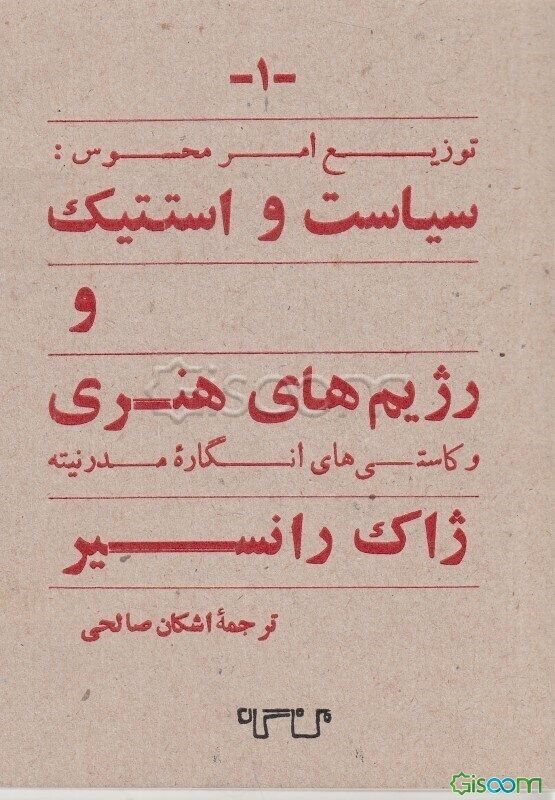 -۱-
توزیع امر محسوس:
سیاست و استتیک
و
رژیم‌های هنری
و کاستی‌های انگارهٔ مدرنیته
ژاک رانسیر
ترجمهٔ اشکان صالحی
Giscom
Gisoom